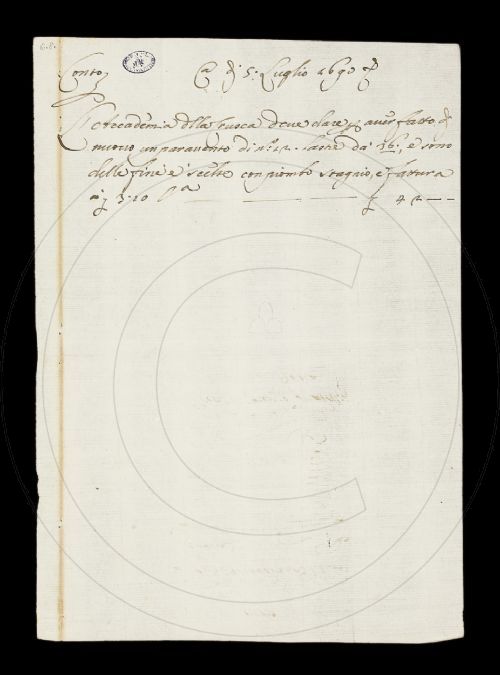 68.
Conto Adì 5: Luglio 1690
L'Accademia della Crusca deve dare p aver fatto di
nuovo un paravento di n.º 12. lastre da 16. e sono
delle fine e scelte con piombo stagno, e fattura
3:10 l'a 42 — —